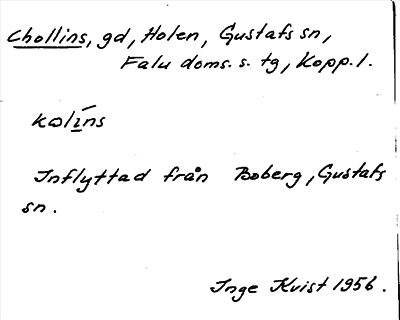 Chollins, gd, Holen, Gustafs sn,
Falu doms. s. tg, Kopp. l.
kolíns
Inflyttad från Boberg, Gustafs
sn.
Inge Kvist 1956.